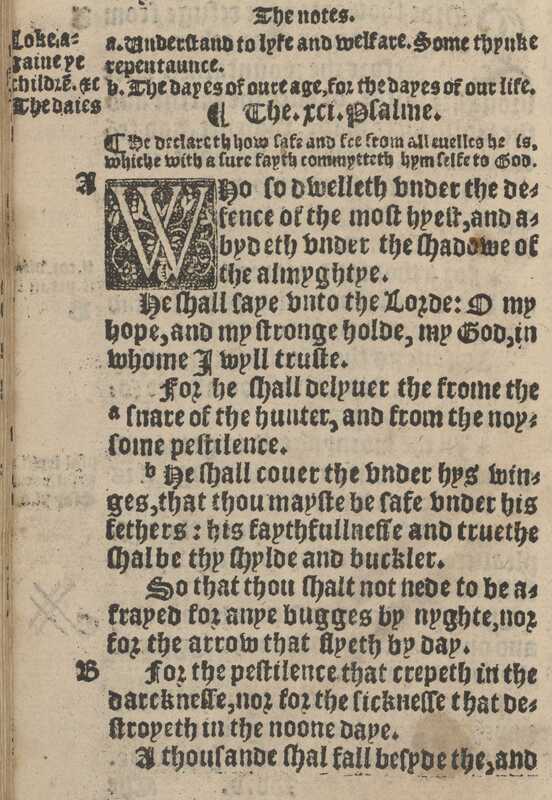 The notes.
Loke, a-
gaine ye
childrē. &c
The daies
a. Understand to lyfe and welfare. Some thynke
repentaunce.
b. The dayes of oure age, for the dayes of our life.
¶ The .xci. Psalme.
¶ He declareth how safe and fre from all euelles he is,
whiche with a sure fayth commytteth hym selfe to God.
A
WHo so dwelleth vnder the de-
fence of the most hyest, and a-
bydeth vnder the shadowe of
the almyghtye.
He shall saye vnto the Lorde: O my
hope, and my stronge holde, my God, in
whome I wyll truste.
For he shall delyuer the frome the
a snare of the hunter, and from the noy-
some pestilence.
b He shall couer the vnder hys win-
ges, that thou mayste be safe vnder his
fethers: his faythfullnesse and truethe
shalbe thy shylde and buckler.
So that thou shalt not nede to be a-
frayed for anye bugges by nyghte, nor
for the arrow that flyeth by day.
B
For the pestilence that crepeth in the
darcknesse, nor for the sicknesse that de-
stroyeth in the noone daye.
A thousande shal fall besyde the, and